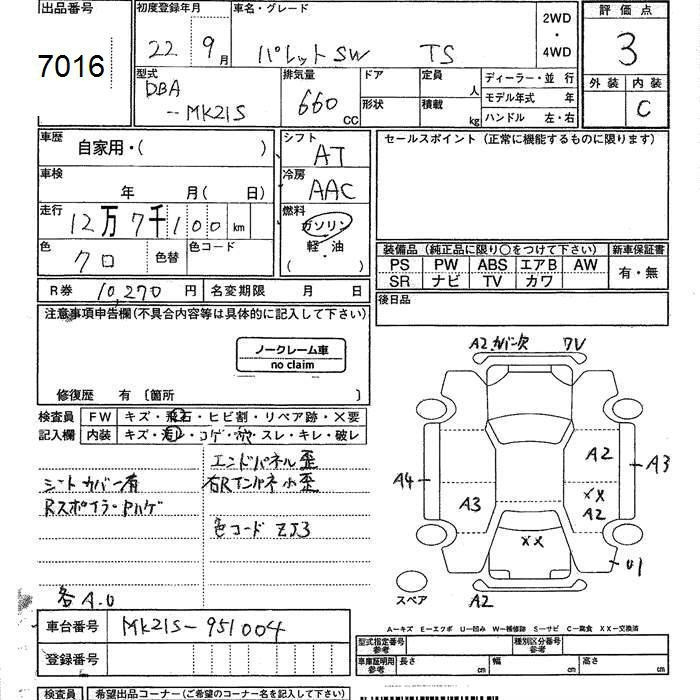 出品番号 初度登録年月 車名・グレード 2WD・4WD 評価点
7016 22年 9月 パレットSW TS 3
型式 排気量 ドア 定員 人 ディーラー・並 行 外装 内装
DBA
-- MK21S 660cc 形状 積載 kg モデル年式 年 C
ハンドル 左・右
車歴 自家用・( ) シフト AT セールスポイント (正常に機能するものに限ります)
車検 年 月( 日) 冷房 AAC
走行 12万7千100km 燃料 ガソリン
色 クロ 色替 色コード 軽・油
( )
装備品 (純正品に限り○をつけて下さい) 新車保証書
PS PW ABS エアB AW 有・無
SR ナビ TV カワ
R券 10,270円 名変期限 月 日 後日品
注意事項申告欄(不具合内容等は具体的に記入して下さい)
ノークレーム車
no claim
修復歴 有 〔箇所 〕
検査員 FW キズ・飛石・ヒビ割・リペア跡・X要
記入欄 内装 キズ・汚レ・コゲ・穴・スレ・キレ・破レ
エンドパネル歪
シートカバー有
Rスポイラ・Pハゲ
色コード ZJ3
各A.U
A2 カバー欠 ワレ
A2
A4 A3
A3
XX
A2
XX
U1
スペア A2
A-キズ E-エクボ U-凹み W-補修跡 S-サビ C-腐食 XX-交換済
車台番号 MK21S-951004
登録番号
型式指定番号 参考 種別区分番号 参考
車庫証明用 参考 長さ cm 幅 cm 高さ cm
検査員 希望出品コーナー(ご希望のコーナー名を記入して下さい)